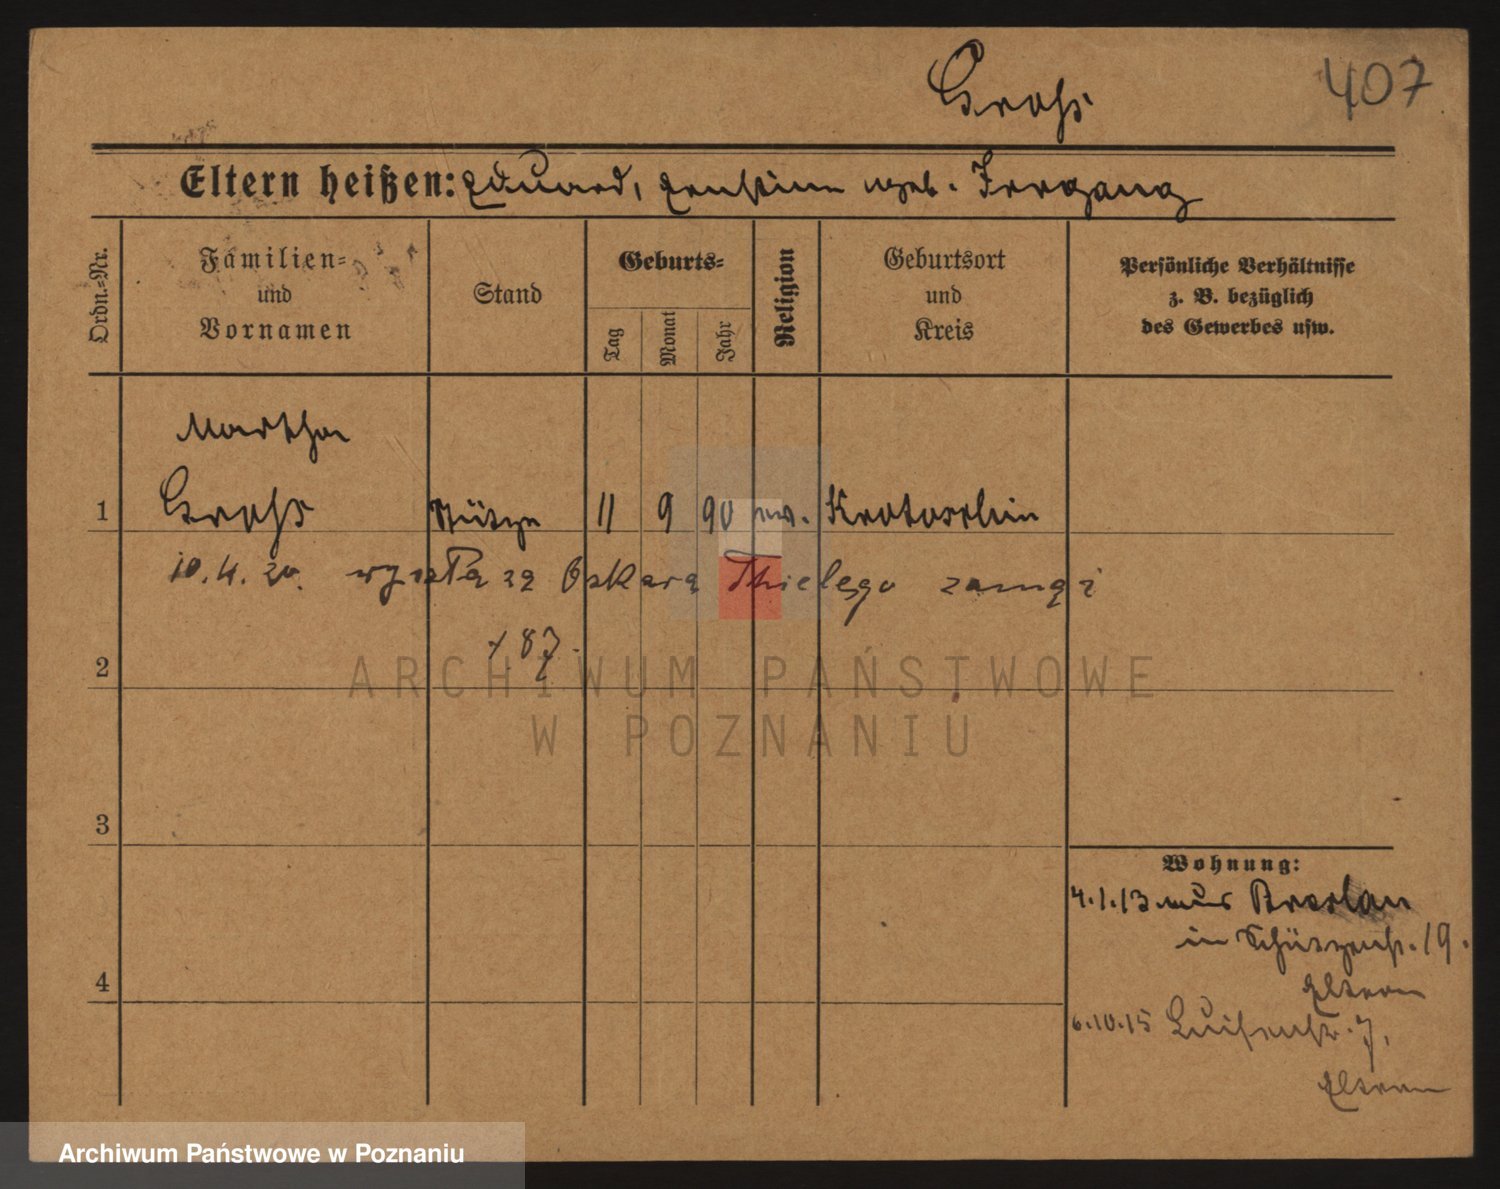 Groß
407
Eltern heißen: Eduard, Ernstine geb. Irrgang
Ordn.-Nr.
Familien-
und
Vornamen
Stand
Geburts-
Tag
Monat
Jahr
Religion
Geburtsort
und
Kreis
Persönliche Verhältnisse
z. B. bezüglich
des Gewerbes usw.
Martha
1 Groß Stütze 11 9 90 ev. Krotoschin
10.4.20. wyszła za Oskara Thielego zamąż
2
3
4
Wohnung:
4.1.13 aus Breslau
in Schützenstr. 19.
Eltern
6.10.15 Luisenstr. 7.
Eltern
ARCHIWUM PAŃSTWOWE
W POZNANIU
Archiwum Państwowe w Poznaniu